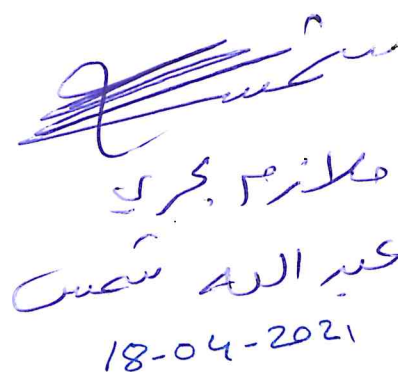 شمس
ملازم بحري
عبد الله شمس
18-04-2021